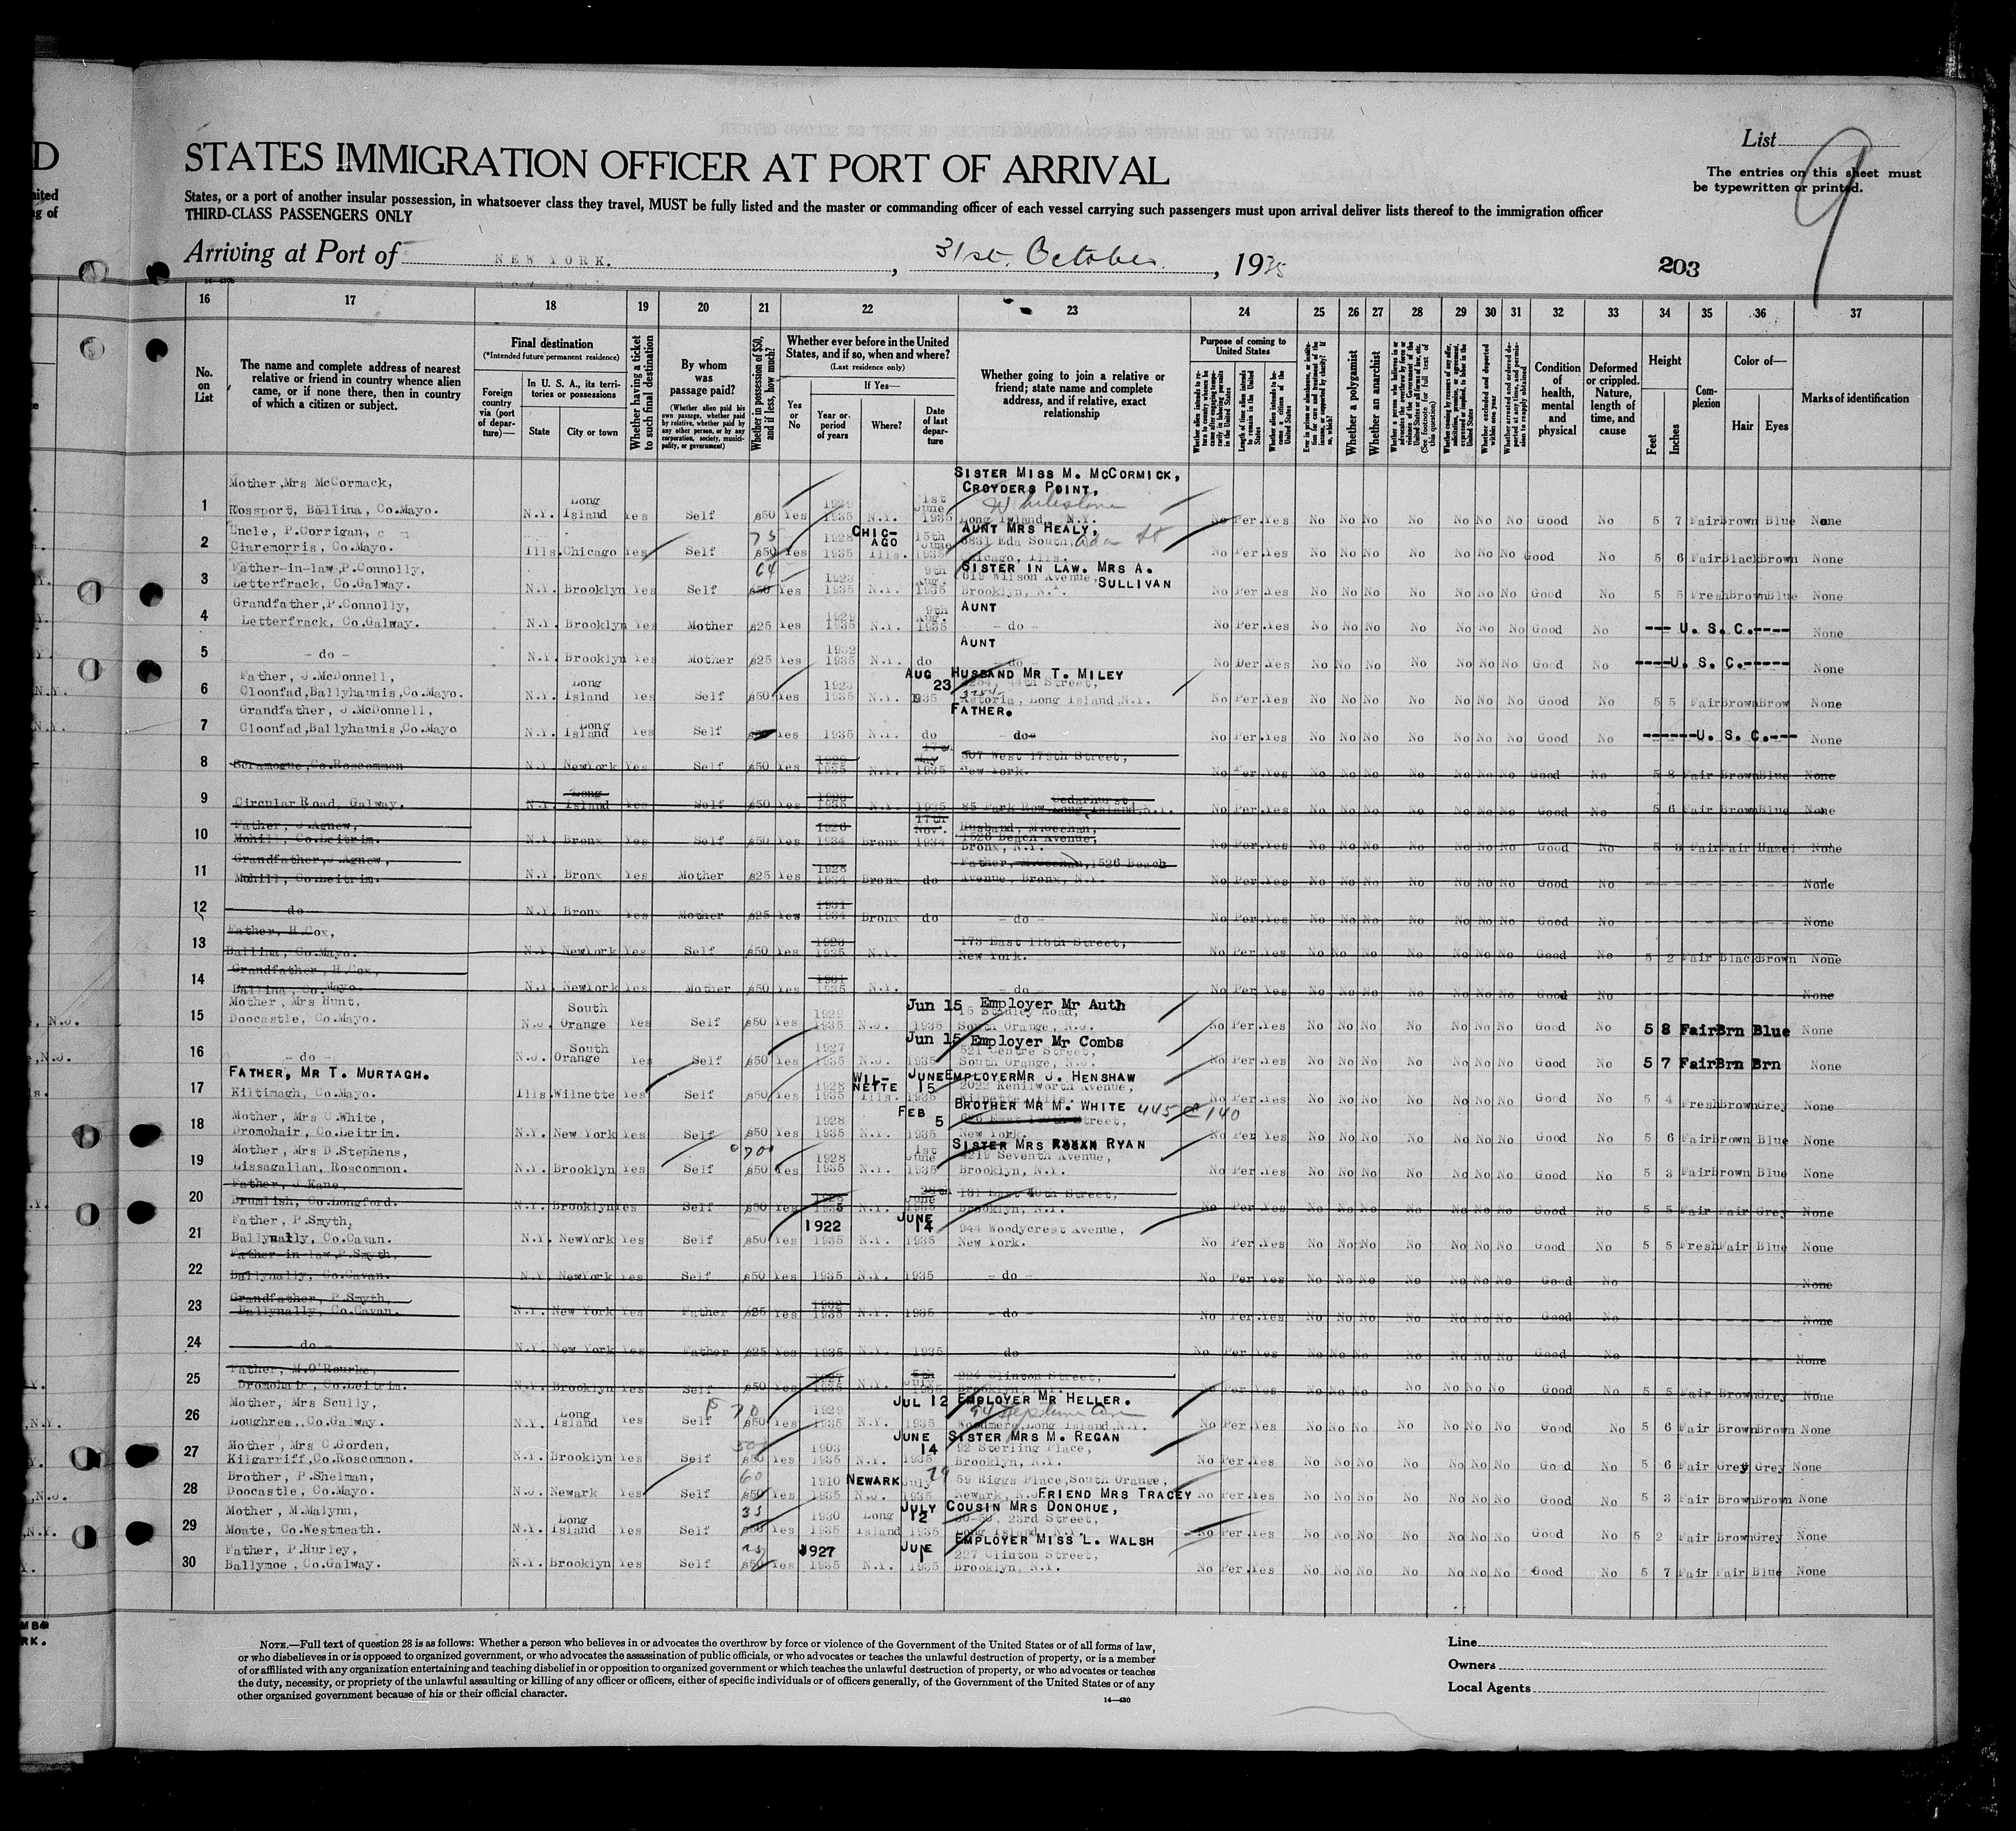 D
STATES IMMIGRATION OFFICER AT PORT OF ARRIVAL
List
9
The entries on this sheet must
be typewritten or printed.
States, or a port of another insular possession, in whatsoever class they travel, MUST be fully listed and the master or commanding officer of each vessel carrying such passengers must upon arrival deliver lists thereof to the immigration officer
THIRD-CLASS PASSENGERS ONLY
Arriving at Port of NEW YORK. , 31st. October. , 1935
203
16 17 18 19 20 21 22 23 24 25 26 27 28 29 30 31 32 33 34 35 36 37
No. on List
The name and complete address of nearest
relative or friend in country whence alien
came, or if none there, then in country
of which a citizen or subject.
Final destination
(*Intended future permanent residence)
Foreign country via (port of departure)—
In U. S. A., its territories or possessions
State
City or town
Whether having a ticket to such final destination
By whom was passage paid?
(Whether alien paid his own passage, whether paid by relative, whether paid by any other person, or by any corporation, society, municipality, or government)
Whether in possession of $50, and if less, how much?
Whether ever before in the United
States, and if so, when and where?
(Last residence only)
Yes or No
If Yes—
Year or period of years
Where?
Date of last departure
Whether going to join a relative or
friend; state name and complete
address, and if relative, exact
relationship
Purpose of coming to United States
Length of time alien intends to remain in the United States
Whether alien intends to become a citizen of the United States
Whether a polygamist
Whether an anarchist
Condition of health, mental and physical
Deformed or crippled. Nature, length of time, and cause
Height
Feet
Inches
Complexion
Color of—
Hair
Eyes
Marks of identification
1 Mother, Mrs McCormack,
Rossport, Ballina, Co.Mayo. N.Y. Long Island Yes Self $50 Yes 1935 N.Y. 1st June 1935 SISTER MISS M. McCORMICK, CROYDERS POINT, Whitestone Long Island, N.Y. No Per. Yes No No No No No No No Good No 5 7 Fair Brown Blue None
2 Uncle, P.Corrigan,
Claremorris, Co.Mayo. Ills. Chicago Yes Self 75 $50 Yes 1928 1935 CHICAGO Ills. 15th June 1935 AUNT MRS HEALY, 6831 Eda South, Ada St Chicago, Ills. No Per. Yes No No No No No No No Good No 5 6 Fair Black Brown None
3 Father-in-law, P.Connolly,
Letterfrack, Co.Galway. N.Y. Brooklyn Yes Self 64 $50 Yes 1923 1935 N.Y. 9th Aug. 1935 SISTER IN LAW. MRS A. SULLIVAN 619 Wilson Avenue, Brooklyn, N.Y. No Per. Yes No No No No No No No Good No 5 5 Fresh Brown Blue None
4 Grandfather, P.Connolly,
Letterfrack, Co.Galway. N.Y. Brooklyn Yes Mother $25 Yes 1935 N.Y. 9th Aug. 1935 AUNT - do - No Per. Yes No No No No No No No Good No --- U. S. C.---- None
5 - do - N.Y. Brooklyn Yes Mother $25 Yes 1932 1935 N.Y. do AUNT do No Per Yes No No No No No No No Good No ----U. S. C.----- None
6 Father, J.McDonnell,
Cloonfad, Ballyhaunis, Co.Mayo. N.Y. Long Island Yes Self $50 Yes 1935 N.Y. AUG 23 1935 HUSBAND MR T. MILEY 44th Street, Astoria, Long Island, N.Y. No Per. Yes No No No No No No No Good No 5 5 Fair Brown Brow None
7 Grandfather, J.McDonnell,
Cloonfad, Ballyhaunis, Co.Mayo N.Y. Long Island Yes Self Yes 1935 N.Y. do FATHER. - do - No Per. Yes No No No No No No No Good No ------U. S. C.--- None
8 Scramogue, Co.Roscommon N.Y. NewYork Yes Self $50 Yes 1935 N.Y. 17th May 1935 507 West 179th Street, New York. No Per Yes No No No No No No No Good No 5 8 Fair Brown Blue None
9 Circular Road, Galway. N.Y. Long Island Yes Self $50 Yes 1935 N.Y. 1935 85 Park Row, Cedarhurst, Long Island, N.Y. No Per. Yes No No No No No No No Good No 5 6 Fair Brown Blue None
10 Father, J.Agnew,
Mohill, Co.Leitrim. N.Y. Bronx Yes Self $50 Yes 1926 1934 Bronx 17th Nov. 1934 Husband, M.Geehan, 1526 Beach Avenue, Bronx, N.Y. No Per. Yes No No No No No No No Good No 5 8 Fair Fair Hazel None
11 Grandfather, J.Agnew,
Mohill, Co.Leitrim. N.Y. Bronx Yes Mother $25 Yes 1928 1934 Bronx do Father, M.Geehan, 1526 Beach Avenue, Bronx, N.Y. No Per. Yes No No No No No No No Good No None
12 - do - N.Y. Bronx Yes Mother $25 Yes 1931 1934 Bronx do - do - No Per. Yes No No No No No No No Good No None
13 Father, H.Cox,
Ballina, Co.Mayo. N.Y. NewYork Yes Self $50 Yes 1928 1935 N.Y. 173 East 118th Street, New York. No Per. Yes No No No No No No No Good No 5 2 Fair Black Brown None
14 Grandfather, H.Cox,
Ballina, Co.Mayo. N.Y. NewYork Yes Mother $50 Yes 1931 1935 N.Y. - do - No Per. Yes No No No No No No No Good No None
15 Mother, Mrs Hunt,
Doocastle, Co.Mayo. N.J. South Orange Yes Self $50 Yes 1929 1935 N.J. Jun 15 1935 Employer Mr Auth 15 Stanley Road, South Orange, N.J. No Per. Yes No No No No No No No Good No 5 8 Fair Brn Blue None
16 - do - N.J. South Orange Yes Self $50 Yes 1927 1935 N.J. Jun 15 1935 Employer Mr Combs 521 Centre Street, South Orange, N.J. No Per. Yes No No No No No No No Good No 5 7 Fair Brn Brn None
17 FATHER, MR T. MURTAGH.
Kiltimagh, Co.Mayo. Ills. Wilnette Yes Self $50 Yes 1928 1935 WILNETTE Ills. JUNE 15 1935 EMPLOYER MR J. HENSHAW 2022 Kenilworth Avenue, Wilnette Ills. No Per. Yes No No No No No No No Good No 5 4 Fresh Brown Grey None
18 Mother, Mrs C.White,
Dromohair, Co.Leitrim. N.Y. New York Yes Self $50 Yes 1928 1935 N.Y. FEB 5 1935 BROTHER MR M. WHITE 445 E 140 Street, New York. No Per Yes No No No No No No No Good No 5 6 Fair Brown Blue None
19 Mother, Mrs D.Stephens,
Lissagallan, Roscommon. N.Y. Brooklyn Yes Self 700 $50 Yes 1928 1935 N.Y. 1st June 1935 SISTER MRS RYAN 4219 Seventh Avenue, Brooklyn, N.Y. No Per. Yes No No No No No No No Good No 5 3 Fair Brown Blue None
20 Father, J.Kane,
Drumlish, Co.Longford. N.Y. Brooklyn Yes Self $50 Yes 1935 N.Y. 28th June 1935 191 East 40th Street, Brooklyn, N.Y. No Per. Yes No No No No No No No Good No 5 5 Fair Fair Grey None
21 Father, P.Smyth,
Ballynally, Co.Cavan. N.Y. NewYork Yes Self $50 Yes 1922 1935 N.Y. JUNE 14 1935 944 Woodycrest Avenue, New York. No Per. Yes No No No No No No No Good No 5 5 Fresh Fair Blue None
22 Father-in-law, P.Smyth,
Ballynally, Co.Cavan. N.Y. NewYork Yes Self $50 Yes 1935 N.Y. 1935 - do - No Per Yes No No No No No No No Good No None
23 Grandfather, P.Smyth,
Ballynally, Co.Cavan. N.Y. New York Yes Father $25 Yes 1935 N.Y. 1935 - do - No Per. Yes No No No No No No No Good No None
24 - do - N.Y. New York Yes Father $25 Yes 1935 N.Y. 1935 - do - No Per Yes No No No No No No No Good No None
25 Father, M.O'Rourke,
Dromohair, Co.Leitrim. N.Y. Brooklyn Yes Self $50 Yes 1927 1935 N.Y. 5th July 1935 224 Clinton Street, Brooklyn, N.Y. No Per. Yes No No No No No No No Good No 5 5 Fair Brown Grey None
26 Mother, Mrs Scully,
Loughrea, Co.Galway. N.Y. Long Island Yes Self 70 $50 Yes 1929 1935 N.Y. JUL 12 1935 EMPLOYER MR HELLER. 94 Neptune Ave Woodmere, Long Island, N.Y. No Per. Yes No No No No No No No Good No 5 6 Fair Brown Brown None
27 Mother, Mrs C.Gorden,
Kilgarriff, Co.Roscommon. N.Y. Brooklyn Yes Self 500 $50 Yes 1903 1935 N.Y. JUNE 14 1935 SISTER MRS M. REGAN 92 Sterling Place, Brooklyn, N.Y. No Per. Yes No No No No No No No Good No 5 6 Fair Grey Grey None
28 Brother, P.Shelman,
Doocastle, Co.Mayo. N.J. Newark Yes Self 60 $50 Yes 1910 1935 NEWARK N.J. July 19 1935 59 Riggs Place, South Orange, Newark, N.J. FRIEND MRS TRACEY No Per. Yes No No No No No No No Good No 5 3 Fair Brown Brown None
29 Mother, M.Malynn,
Moate, Co.Westmeath. N.Y. Long Island Yes Self 35 $50 Yes 1930 1935 Long Island JULY 12 1935 COUSIN MRS DONOHUE, 30-50, 23rd Street, Long Island, N.Y. No Per. Yes No No No No No No No Good No 5 2 Fair Brown Grey None
30 Father, P.Hurley,
Ballymoe, Co.Galway. N.Y. Brooklyn Yes Self $50 Yes 1927 1935 N.Y. JUNE 1 1935 EMPLOYER MISS L. WALSH 227 Clinton Street, Brooklyn, N.Y. No Per. Yes No No No No No No No Good No 5 7 Fair Fair Blue None
NOTE.—Full text of question 28 is as follows: Whether a person who believes in or advocates the overthrow by force or violence of the Government of the United States or of all forms of law,
or who disbelieves in or is opposed to organized government, or who advocates the assassination of public officials, or who advocates or teaches the unlawful destruction of property, or is a member
of or affiliated with any organization entertaining and teaching disbelief in or opposition to organized government or which teaches the unlawful destruction of property, or who advocates or teaches
the duty, necessity, or propriety of the unlawful assaulting or killing of any officer or officers, either of specific individuals or of officers generally, of the Government of the United States or of any
other organized government because of his or their official character.
14—430
Line
Owners
Local Agents